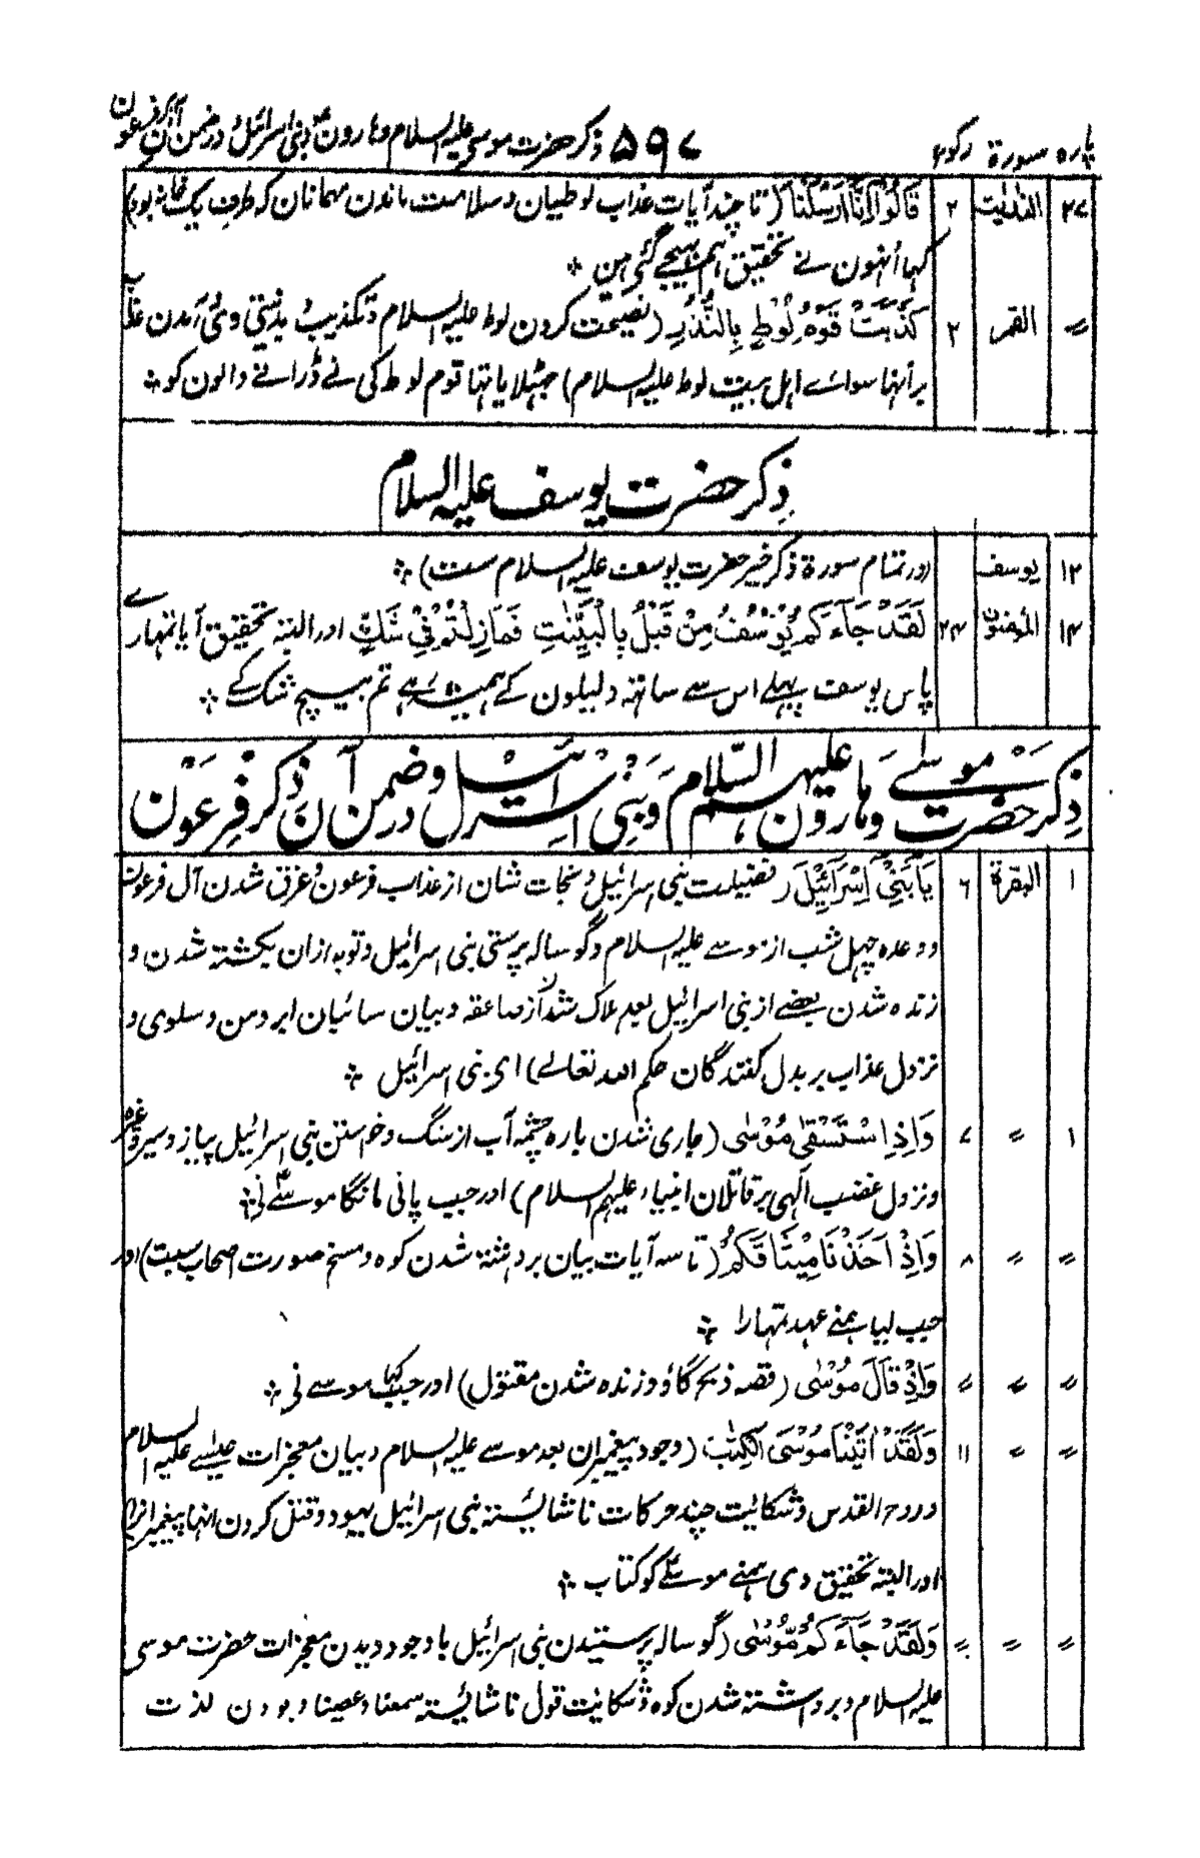 پارہ سورۃ رکوع ۵۹۷ ذکر حضرت موسی علیہ السلام و ہارون و بنی اسرائیل و در ضمن آن ذکر فرعون
۲۷ الذاریت ۲ قَالُوْا اِنَّا اُرْسِلْنَا (تا چند آیات عذاب لوطیان و سلامت ماندن مہمانان کہ طرف یک خانہ بود)
کہا اُنہون نے تحقیق ہم بہیجے گئی ہین ؞
〃 القمر ۲ كَذَّبَتْ قَوْمُ لُوْطٍ بِالنُّذُرِ (نصیحت کردن لوط علیہ السلام و تکذیب
بر اُنہا سواے اہل بیت لوط علیہ السلام) جہٹلایا تہا قوم لوط کی نے ڈرانے والون کو ؞
ذِکر حضرت یوسف علیہ السلام
۱۲ یوسف (در تمام سورۃ ذکر خیر حضرت یوسف علیہ السلام ست) ؞
۲۴ المؤمنون ۲۴ لَقَدْ جَآءَكُمْ يُوْسُفُ مِنْ قَبْلُ بِالْبَيِّنٰتِ فَمَا زِلْتُمْ فِيْ شَكٍّ اور البتہ تحقیق آیا تمہارے
پاس یوسف پہلے اس سے ساتہہ دلیلون کے ہمیشہ رہے تم بیچ شک کے ؞
ذِکر حضرت موسٰے و ہارون علیہم السّلام و بنی اسرائیل و در ضمن آن ذکر فرعون
۱ البقرۃ ٦ يَا بَنِيْ اِسْرَآئِيْلَ (فضیلت بنی اسرائیل و نجات شان از عذاب فرعون و غرق شدن آل فرعون
و وعدہ چہل شب از موسے علیہ السلام و گوسالہ پرستی بنی اسرائیل و توبہ ازان بکشتہ شدن و
زندہ شدن بعضے از بنی اسرائیل بعد ہلاک شدن از صاعقہ و بیان سائبان ابر و من و سلوی و
نزول عذاب بر بدل کنندگان حکم اللہ تعالے) ای بنی اسرائیل ؞
۱ 〃 ۷ وَاِذِ اسْتَسْقٰى مُوْسٰى (جاری شدن بارہ چشمہ آب از سنگ و خواستن بنی اسرائیل پیاز و سیر وغیرہ
و نزول غضب الٰہی بر قاتلان انبیاء علیہم السلام) اور جب پانی مانگا موسٰے نے ؞
〃 〃 ۸ وَاِذْ اَخَذْنَا مِيْثَاقَكُمْ (تا سہ آیات بیان برداشتہ شدن کوہ و مسخ صورت اصحاب سبت) اور
جب لیا ہمنے عہد تمہارا ؞
〃 〃 〃 وَاِذْ قَالَ مُوْسٰى (قصہ ذبح گاؤ و زندہ شدن مقتول) اور جب کہا موسے نی ؞
〃 〃 ۱۱ وَلَقَدْ اٰتَيْنَا مُوْسَى الْكِتٰبَ (وجود پیغمبران بعد موسے علیہ السلام و بیان معجزات عیسے علیہ السلام
و روح القدس و شکایت چند حرکات ناشائستہ بنی اسرائیل یہود و قتل کردن انہا پیغمبرانرا)
اور البتہ تحقیق دی ہمنے موسٰے کو کتاب ؞
〃 〃 〃 وَلَقَدْ جَآءَكُمْ مُّوْسٰى (گوسالہ پرستیدن بنی اسرائیل باوجود دیدن معجزات حضرت موسی
علیہ السلام و برداشتہ شدن کوہ و شکایت قول ناشائستہ سمعنا و عصینا و بودن لذت